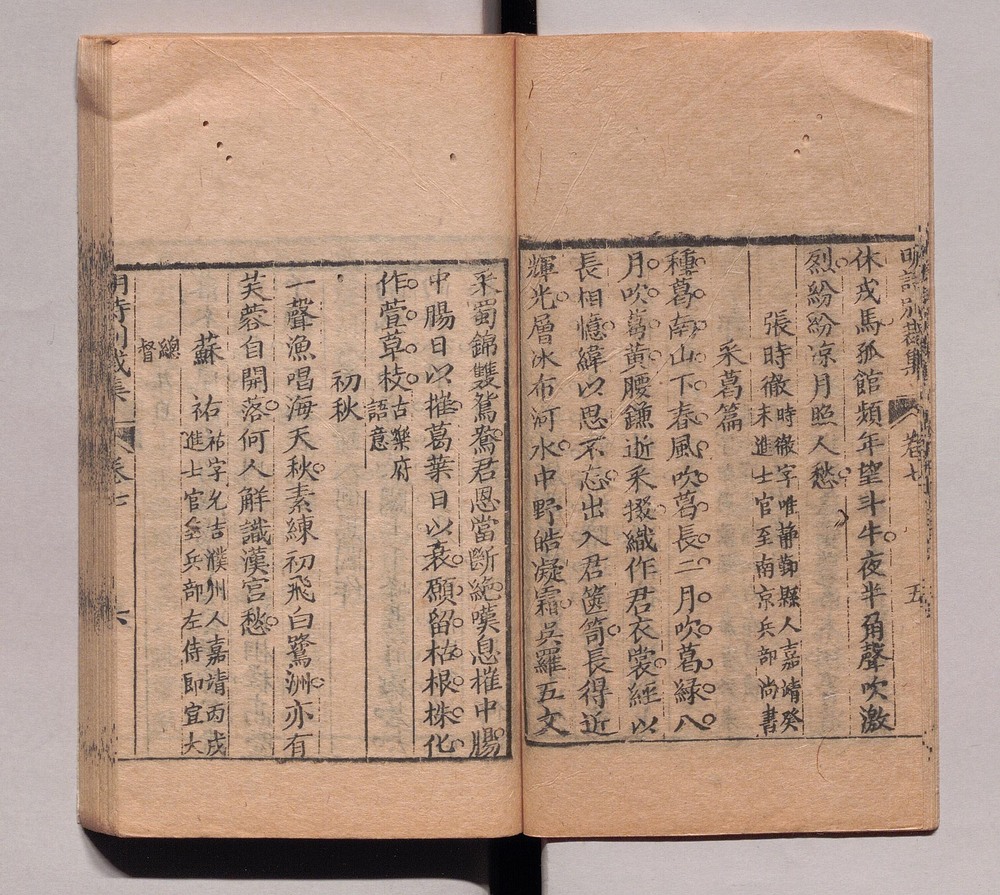 明詩別裁集 卷七 五
休戎馬孤館頻年望斗牛夜半角聲吹激
烈紛紛凉月照人愁
張時徹時徹字唯靜鄞縣人嘉靖癸
未進士官至南京兵部尚書
采葛篇
種葛南山下春風吹葛長二月吹葛綠八
月吹葛黃腰鎌逝采掇織作君衣裳經以
長相憶緯以思不忘出入君篋笥長得近
輝光層冰布河水中野皓凝霜吳羅五文
采蜀錦雙鴛鴦君恩當斷絶嘆息摧中腸
中腸日以摧葛葉日以衰願留枯根株化
作萱草枝古樂府
語意
初秋
一聲漁唱海天秋素練初飛白鷺洲亦有
芙蓉自開落何人解識漢宫愁
蘇祐祐字允吉濮州人嘉靖丙戌
進士官至兵部左侍郎宣大
總
督
明詩別裁集 卷七 六